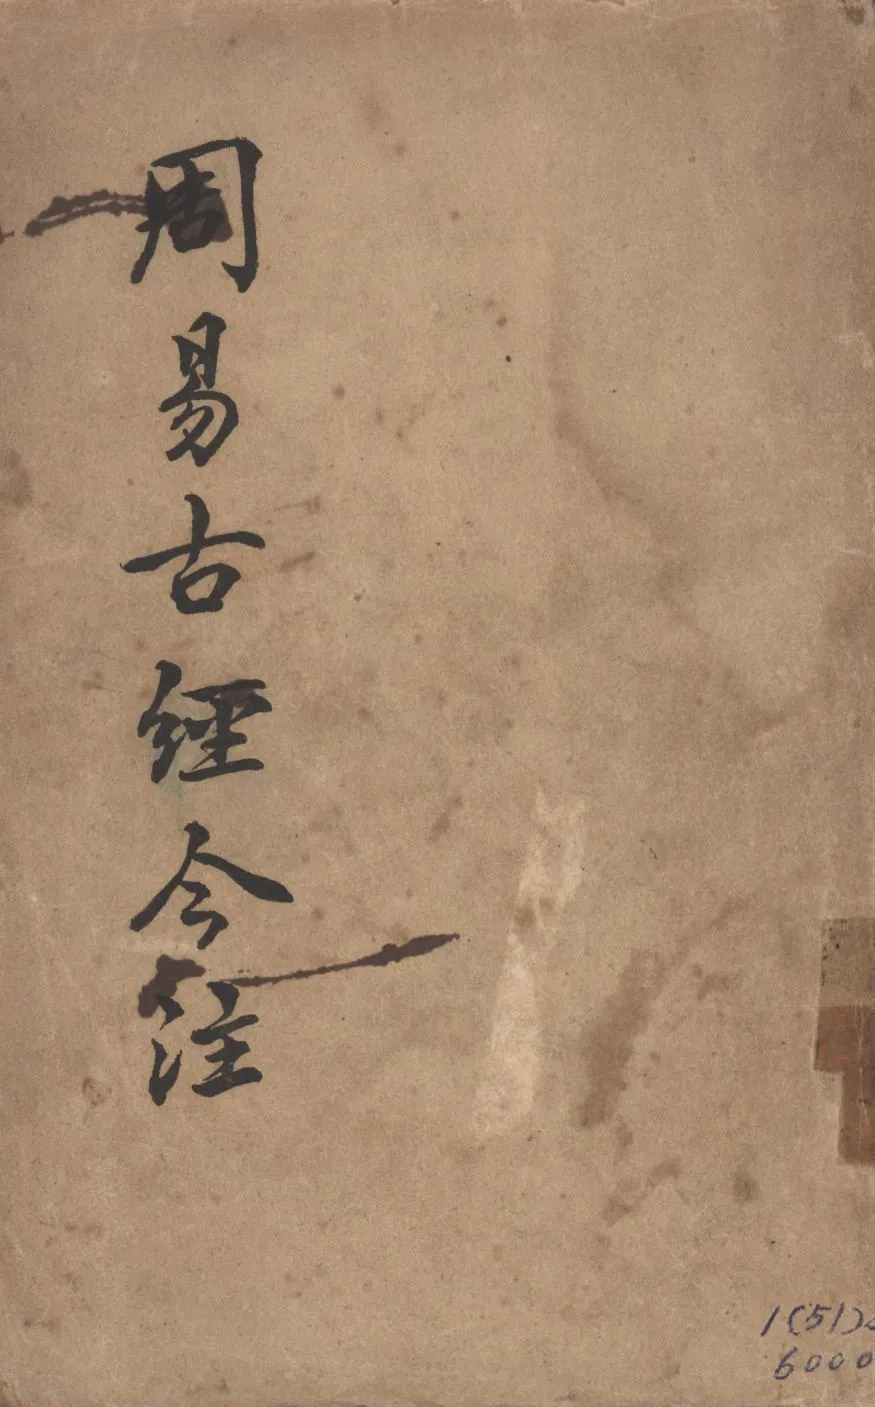 周易古經今注
1(51)
6000